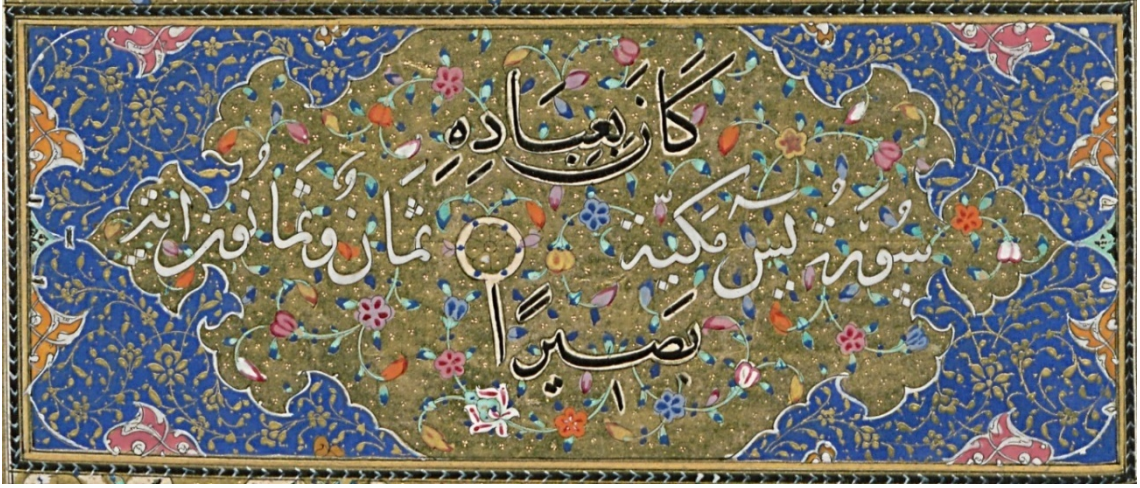 كَانَ بِعِبَادِهِ
سُورَةُ يٰسٓ مَكِّيَّة ثَمَانٌ وَثَمَانُونَ اٰية
بَصِيرًا